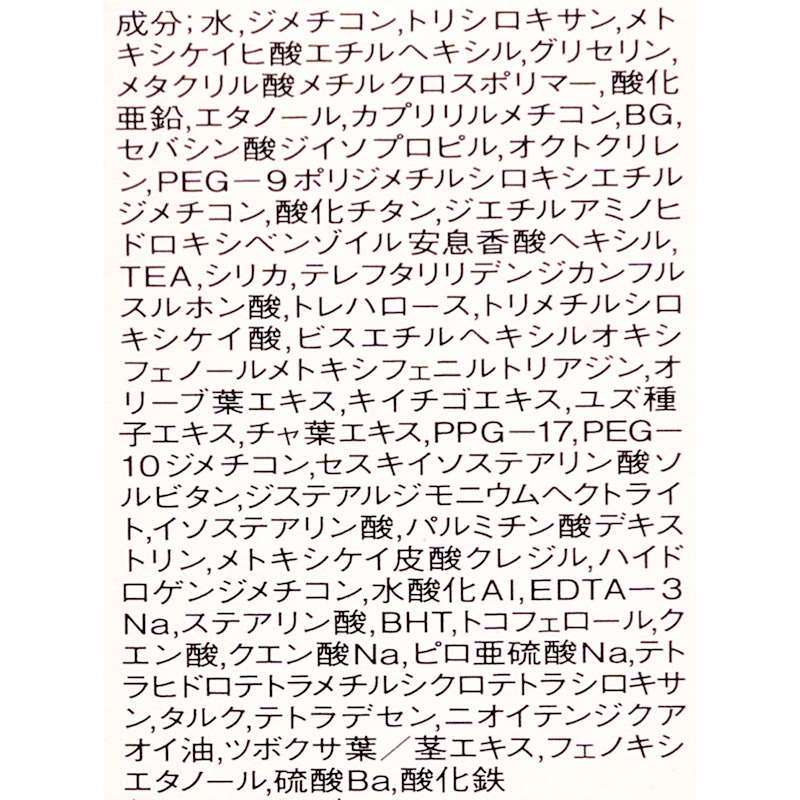 成分;水,ジメチコン,トリシロキサン,メト
キシケイヒ酸エチルヘキシル,グリセリン,
メタクリル酸メチルクロスポリマー,酸化
亜鉛,エタノール,カプリリルメチコン,BG,
セバシン酸ジイソプロピル,オクトクリレ
ン,PEG－9ポリジメチルシロキシエチル
ジメチコン,酸化チタン,ジエチルアミノヒ
ドロキシベンゾイル安息香酸ヘキシル,
TEA,シリカ,テレフタリリデンジカンフル
スルホン酸,トレハロース,トリメチルシロ
キシケイ酸,ビスエチルヘキシルオキシ
フェノールメトキシフェニルトリアジン,オ
リーブ葉エキス,キイチゴエキス,ユズ種
子エキス,チャ葉エキス,PPG－17,PEG－
10ジメチコン,セスキイソステアリン酸ソ
ルビタン,ジステアルジモニウムヘクトライ
ト,イソステアリン酸,パルミチン酸デキス
トリン,メトキシケイ皮酸クレジル,ハイド
ロゲンジメチコン,水酸化Al,EDTA－3
Na,ステアリン酸,BHT,トコフェロール,ク
エン酸,クエン酸Na,ピロ亜硫酸Na,テト
ラヒドロテトラメチルシクロテトラシロキサ
ン,タルク,テトラデセン,ニオイテンジクア
オイ油,ツボクサ葉／茎エキス,フェノキシ
エタノール,硫酸Ba,酸化鉄